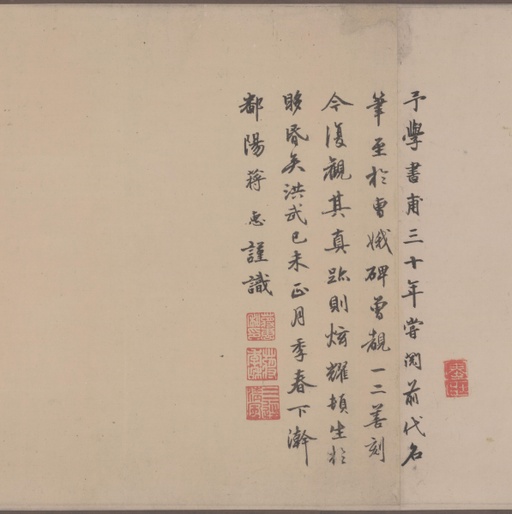 予學書甫三十年嘗閱前代名
筆至於曹娥碑曾覩一二善刻
今復觀其真跡則炫耀頓生於
眵昏矣洪武己未正月季春下澣
鄱陽蔣惠謹識